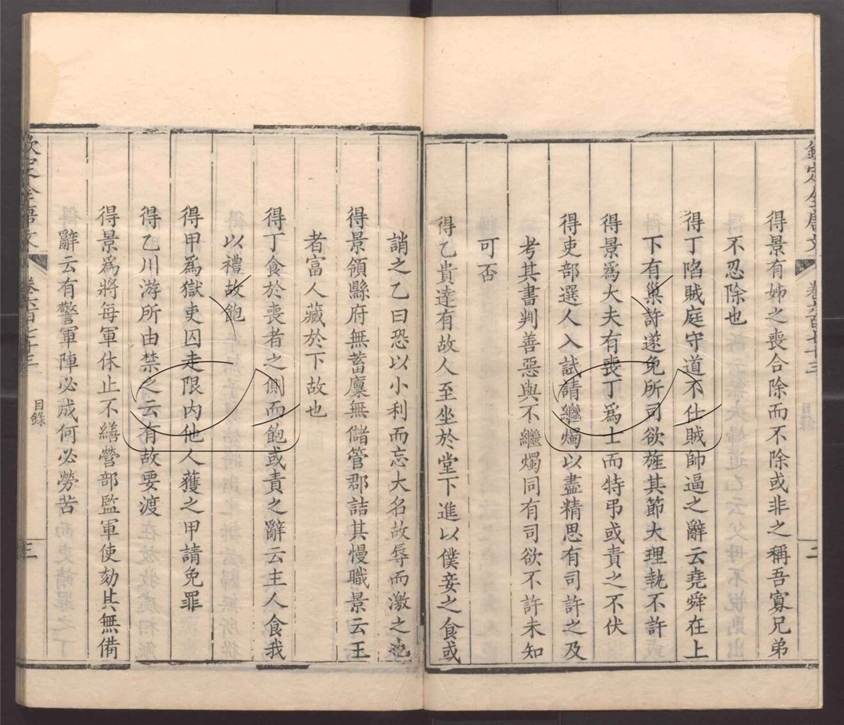 欽定全唐文 卷六百七十三 目錄 二
得景有姊之喪合除而不除或非之稱吾寡兄弟
不忍除也
得丁陷賊庭守道不仕賊帥逼之辭云堯舜在上
下有巢許遂免所司欲旌其節大理執不許
得景爲大夫有喪丁爲士而特弔或責之不伏
得吏部選人入試請繼燭以盡精思有司許之及
考其書判善惡與不繼燭同有司欲不許未知
可否
得乙貴達有故人至坐於堂下進以僕妾之食或
誚之乙曰恐以小利而忘大名故辱而激之也
得景領縣府無蓄廩無儲管郡詰其慢職景云王
者富人藏於下故也
得丁食於喪者之側而飽或責之辭云主人食我
以禮故飽
得甲爲獄吏囚走限內他人獲之甲請免罪
得乙川游所由禁之云有故要渡
得景爲將每軍休止不繕營部監軍使劾其無備
辭云有警軍陣必成何必勞苦
欽定全唐文 卷六百七十三 目錄 三